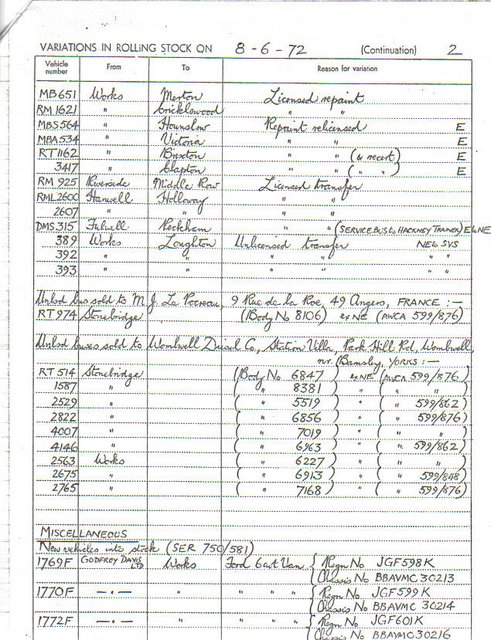 VARIATIONS IN ROLLING STOCK ON 8-6-72 (Continuation) 2
Vehicle number From To Reason for variation
MB651 Works Merton Licensed repaint
RM1621 " Cricklewood " "
MBS564 " Hounslow Repaint relicensed E
MBA534 " Victoria " " E
RT1162 " Brixton " " (& recert) E
3417 " Clapton " " ( " " ) E
RM925 Riverside Middle Row Licensed transfer
RML2600 Hanwell Holloway " "
2607 " " " "
DMS315 Fulwell Peckham " " (SERVICE BUS to HACKNEY TRAINER) EL NE
389 Works Loughton Unlicensed transfer NEL SVS
392 " " " " " "
393 " " " " " "
Unlsd bus sold to M. J. La 9 Rue de la Roe, 49 Angers, FRANCE :-
RT974 Stonebridge (Body No 8106) ex NE (AWCA 599/876)
Unlsd buses sold to Wombwell Diesel Co, Station Villa, Park Hill Rd, Wombwell,
nr. Barnsley, YORKS :-
RT514 Stonebridge (Body No 6847) ex NE (AWCA 599/876)
1587 " ( " 8381 ) " ( " " )
2529 " ( " 5519 ) " ( " 599/862)
2822 " ( " 6856 ) " ( " 599/876)
4007 " ( " 7019 ) " ( " " )
4146 " ( " 6963 ) " ( " 599/862)
2563 Works ( " 6227 ) " ( " " )
2675 " ( " 6913 ) " ( " 599/848)
2765 " ( " 7168 ) " ( " 599/876)
MISCELLANEOUS
New vehicles into stock (SER 750/581)
1769F GODFREY DAVIS LTD Works Ford 6cwt Van { Regn No JGF598K
{ Chassis No BBAVMC 30213
1770F -"- " " " " { Regn No JGF599K
{ Chassis No BBAVMC 30214
1772F -"- " " " " { Regn No JGF601K
{ Chassis No BBAVMC 30216